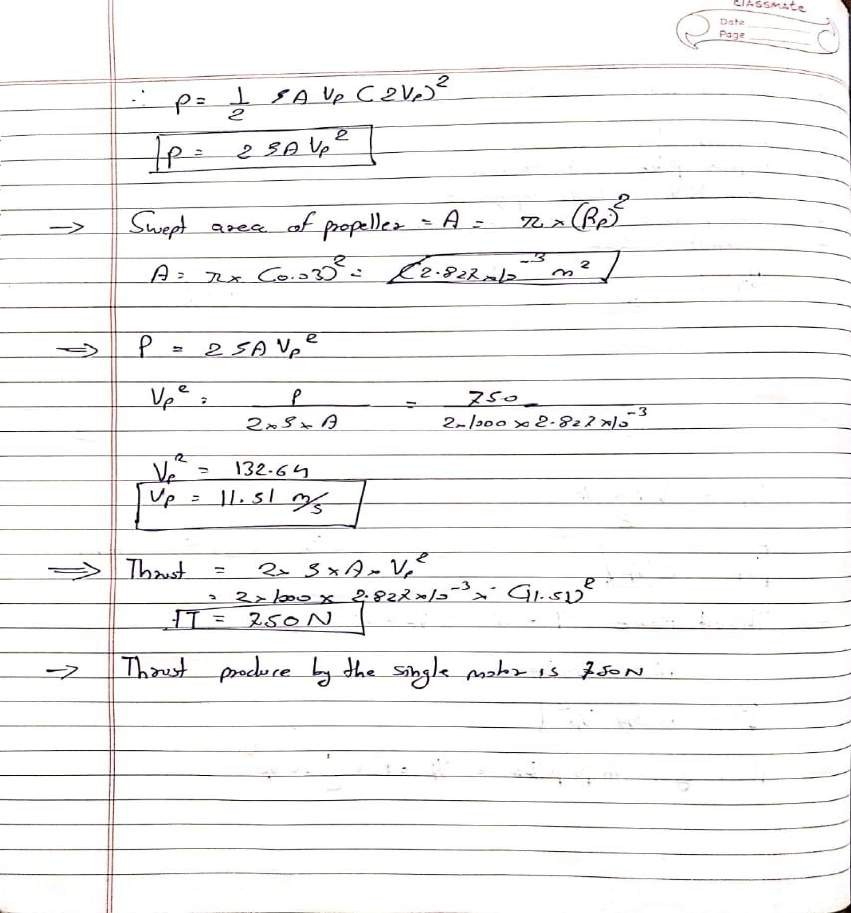 classmate
Date
Page
∴ P = 1/2 ρ A Vp (2Vp)²
P = 2 ρ A Vp²
→ Swept area of propeller = A = π × (Rp)²
A = π × (0.03)² = 2.827 × 10⁻³ m²
⇒ P = 2 ρ A Vp²
Vp² = P / (2 × ρ × A) = 750 / (2 × 1000 × 2.827 × 10⁻³)
Vp² = 132.64
Vp = 11.51 m/s
⇒ Thrust = 2 × ρ × A × Vp²
= 2 × 1000 × 2.827 × 10⁻³ × (11.51)²
T = 750 N
→ Thrust produce by the single motor is 750N.